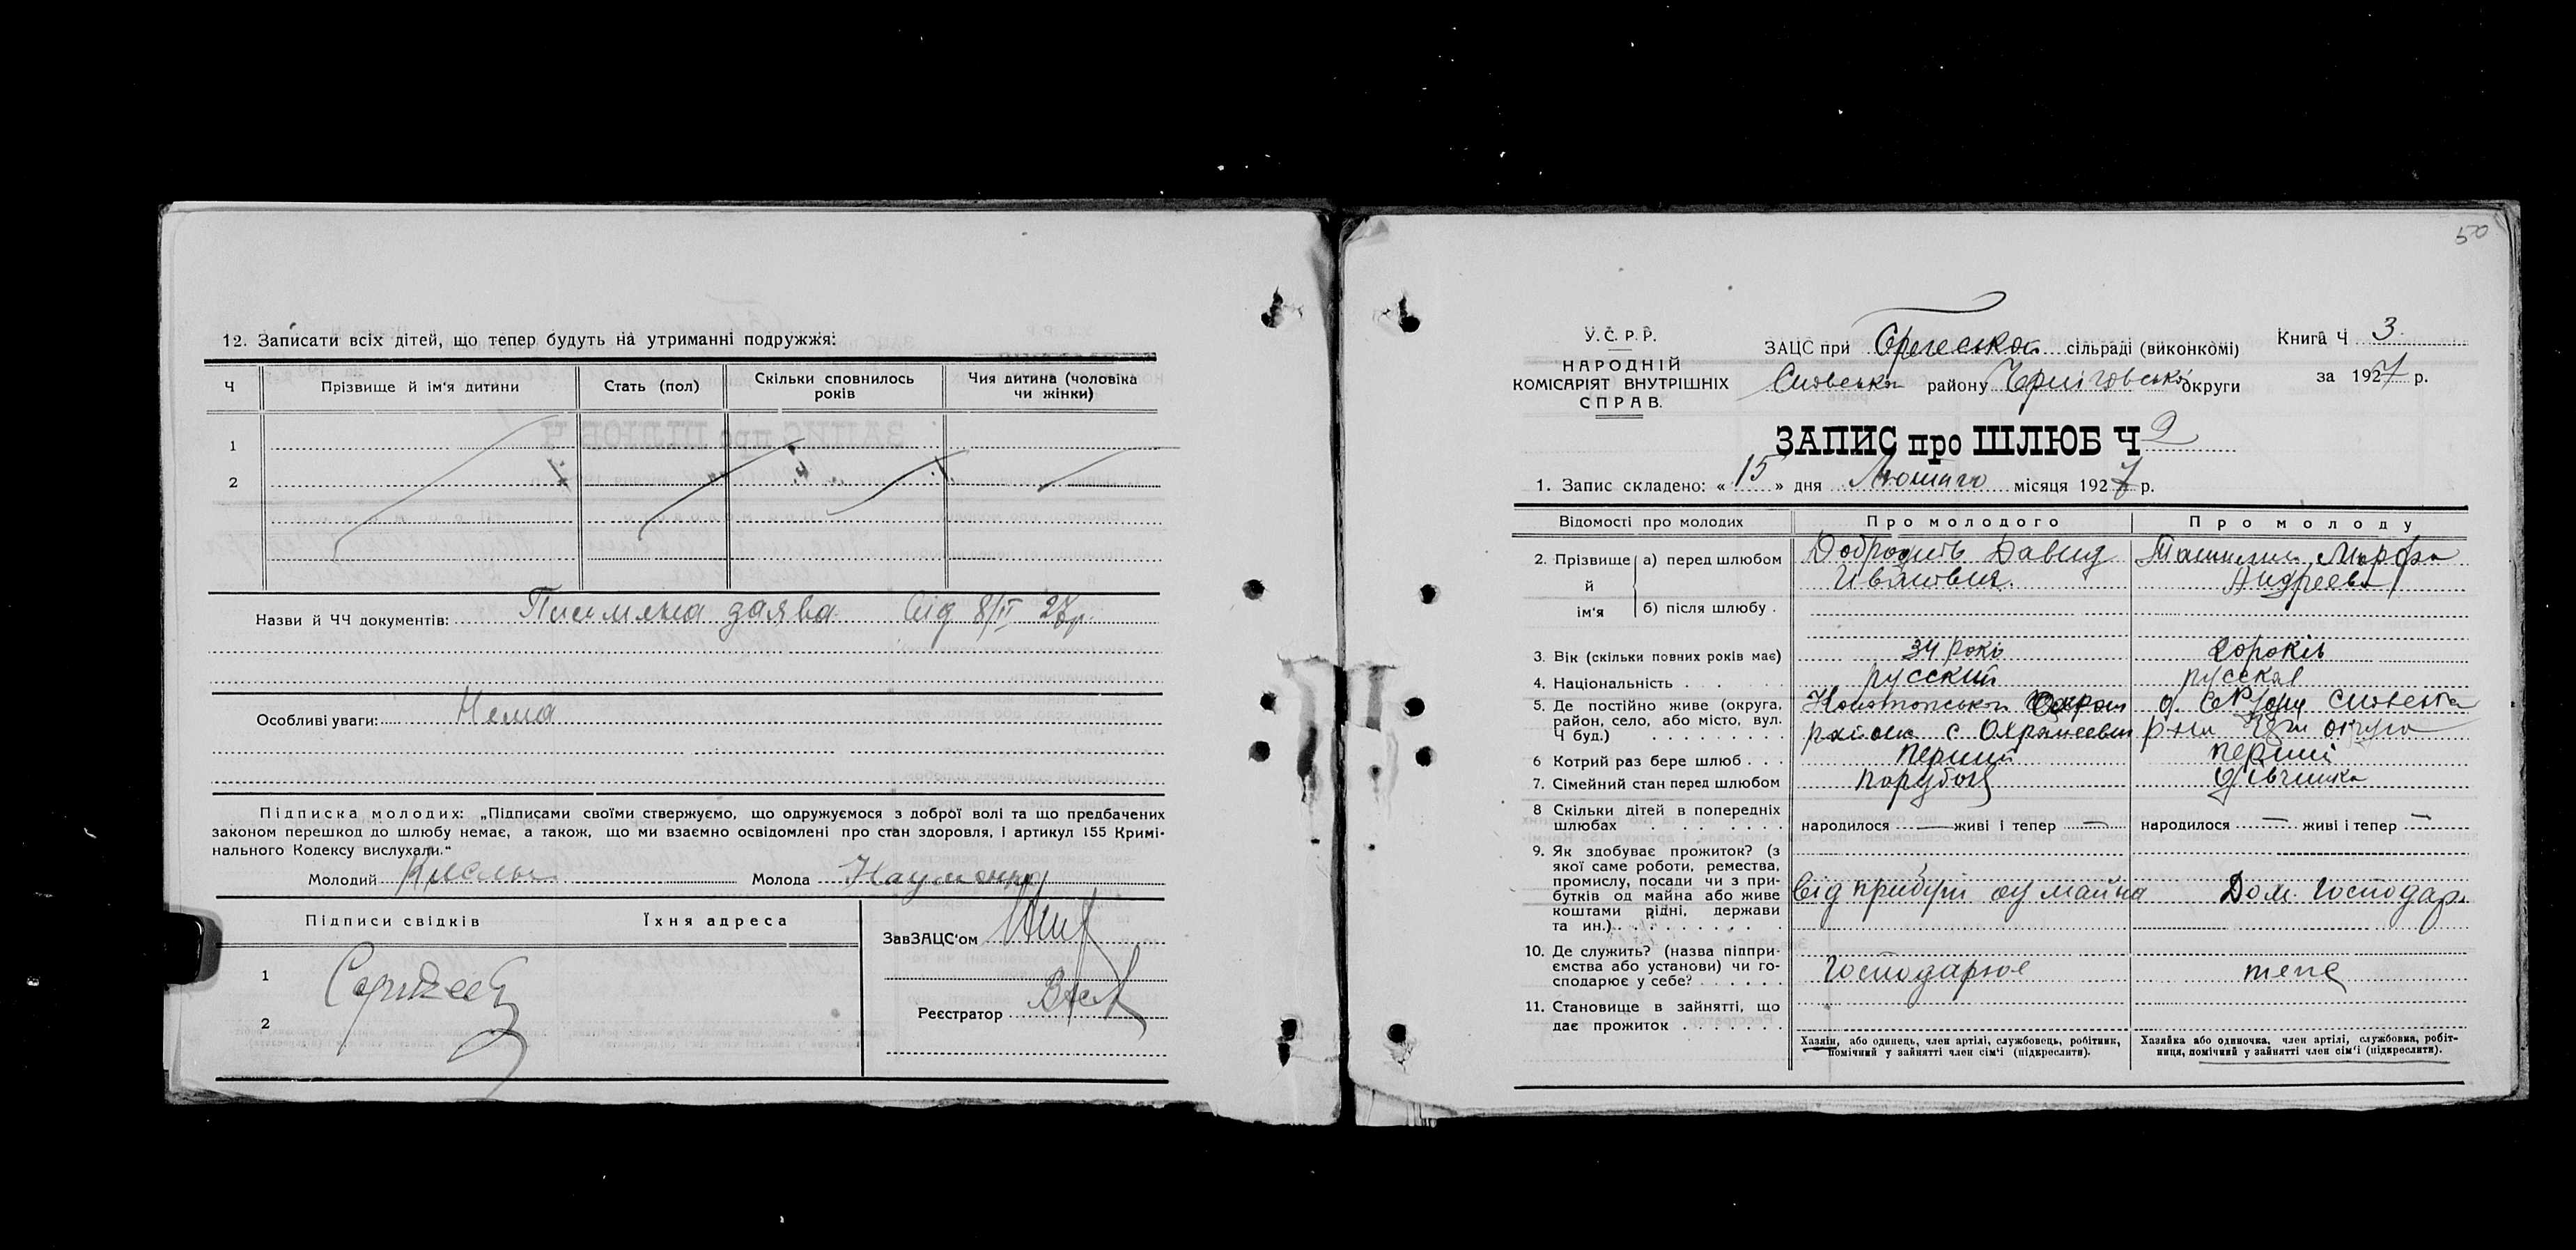 12. Записати всіх дітей, що тепер будуть на утриманні подружжя:
Ч Прізвище й ім'я дитини Стать (пол) Скільки сповнилось років Чия дитина (чоловіка чи жінки)
1
2
Назви й ЧЧ документів: Письмяна заява від 8/II 27р.
Особливі уваги: Нема
Підписка молодих: „Підписами своїми ствержуємо, що одружуємося з доброї волі та що предбачених
законом перешкод до шлюбу немає, а також, що ми взаємно освідомлені про стан здоровля, і артикул 155 Кримі-
нального Кодексу вислухали.“
Молодий Молода
Підписи свідків Їхня адреса
ЗавЗАЦС'ом
1
2
Реєстратор
50
У.С.Р.Р.
НАРОДНІЙ
КОМІСАРІЯТ ВНУТРІШНІХ
СПРАВ.
ЗАЦС при сільраді (виконкомі)
Сновськ. району Чернігівської округи
Книга Ч 3
за 1927 р.
ЗАПИС про ШЛЮБ Ч 2
1. Запис складено: « 15 » дня Лютого місяця 1927 р.
Відомості про молодих Про молодого Про молоду
2. Прізвище й ім'я
а) перед шлюбом Давид Марфа
Іванович. Андреева
б) після шлюбу .
3. Вік (скільки повних років має) 34 рокі 20 років
4. Національність . . русский русская
5. Де постійно живе (округа,
район, село, або місто, вул.
Ч буд.) Конотопськ. район с. р-на округа
6 Котрий раз бере шлюб . . . перший перший
7. Сімейний стан перед шлюбом парубок дівчинка
8 Скільки дітей в попередніх
шлюбах народилося — живі і тепер — народилося — живі і тепер —
9. Як здобуває прожиток? (з
якої саме роботи, ремества,
промислу, посади чи з при-
бутків од майна або живе
коштами рідні, держави
та ин.) від майна Дом. господар.
10. Де служить? (назва підпри-
ємства або установи) чи го-
сподарює у себе? Господарює теж
11. Становище в зайнятті, що
дає прожиток
Хазяїн, або одинець, член артілі, службовець, робітник,
помічний у зайнятті член сім'ї (підкреслити).
Хазяйка або одиночка, член артілі, службовка, робіт-
ниця, помічний у зайнятті член сім'ї (підкреслити).